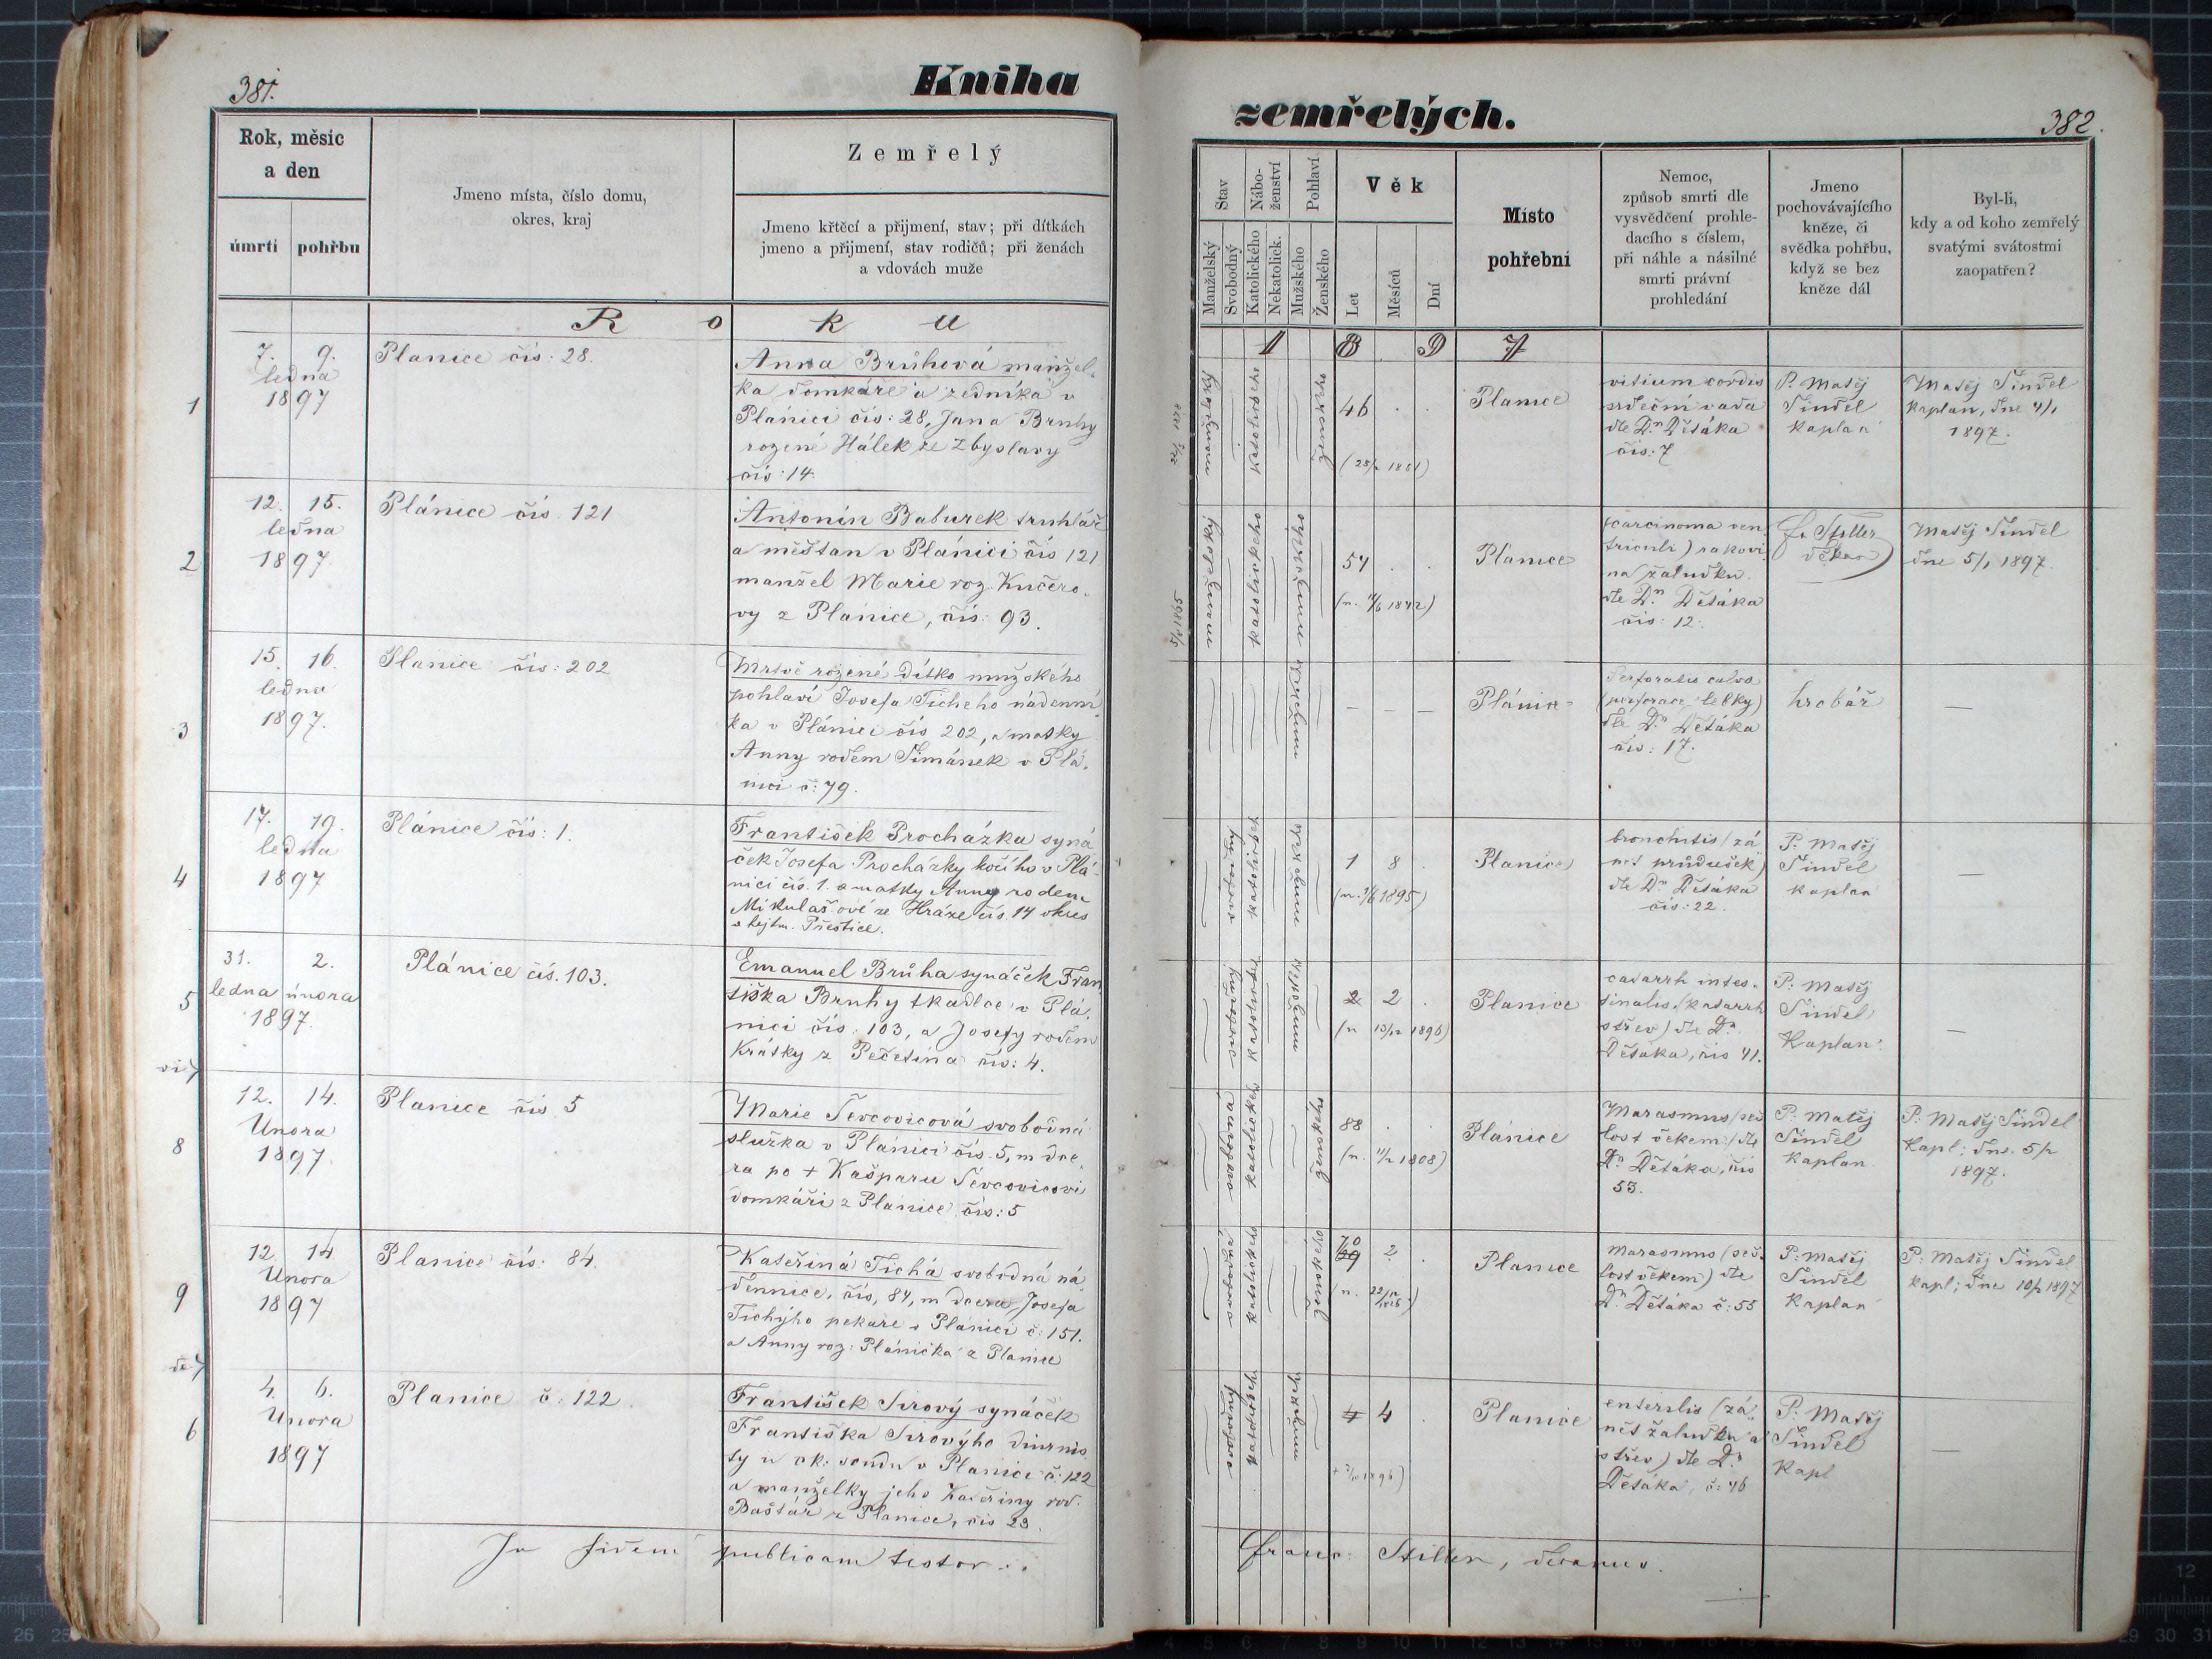 381.
Kniha
Rok, měsíc
a den
úmrtí
pohřbu
Jmeno místa, číslo domu,
okres, kraj
Zemřelý
Jmeno křtěcí a přijmení, stav; při dítkách
jmeno a přijmení, stav rodičů; při ženách
a vdovách muže
R o k u
1
7. 9.
ledna
1897
Planice čís: 28.
Anna Brůhová manžel-
ka domkáře a zedníka v
Plánici čís: 28, Jana Bruhy
rozené Hálek ze Zbyslavy
čís: 14.
2
12. 15.
ledna
1897
Plánice čís. 121
Antonín Baburek truhlář
a měšťan v Plánici čís 121
manžel Marie roz. Kučero-
vy z Plánice, čís: 93.
3
15. 16.
ledna
1897.
Planice čís: 202
Mrtvě rozené dítko mužského
pohlaví Josefa Tichého nádenní
ka v Plánici čís 202, a matky
Anny rodem Šimánek v Plá-
nici č: 79.
4
17. 19.
ledna
1897
Plánice čís: 1.
František Procházka syná
ček Josefa Procházky kočího v Plá-
nici čís. 1. a matky Anny rodem
Mikulašové ze Hráze čís. 14 okres
a hejtm. Přeštice.
5
31. 2.
ledna února
1897.
Plánice čís. 103.
Emanuel Brůha synáček Fran
tiška Bruhy tkadlce v Plá-
nici čís: 103, a Josefy rodem
Krátky z Pečetína čís: 4.
8
12. 14.
Února
1897
Planice čís 5
Marie Ševcovicová svobodná
služka v Plánici čís. 5, m dce-
ra po + Kašparu Ševcovicovi
domkáři z Plánice čís: 5
9
12 14
Února
1897
Planice čís: 84.
Kateřina Tichá svobodná ná
dennice, čís, 84, m dcera Josefa
Tichýho pekaře v Plánici č: 151.
a Anny roz: Plánička z Planice
6
4. 6.
Února
1897
Planice č: 122.
František Sirový synáček
Františka Sirovýho diurnis
ty u ok: soudu v Planici č: 122
a manželky jeho Kateřiny rod.
Baštář z Planice, čís 23.
In fidem publicam testor:
zemřelých.
382.
Stav
Nábo-
ženství
Pohlaví
Manželský
Svobodný
Katolického
Nekatolick.
Mužského
Ženského
Věk
Let
Měsíců
Dní
Místo
pohřební
Nemoc,
způsob smrti dle
vysvědčení prohle-
dacího s číslem,
při náhle a násilné
smrti právní
prohledání
Jmeno
pochovávajícího
kněze, či
svědka pohřbu,
když se bez
kněze dál
Byl-li,
kdy a od koho zemřelý
svatými svátostmi
zaopatřen?
1 8 9 7
46 . .
Planice
vitium cordis
srdeční vada
dle Dra Dětáka
čís: 7
P. Matěj
Šindel
kaplan
Matěj Šindel
kaplan, dne 4/1
1897.
5/2 1865
manželský
katolického
mužského
54 . .
Planice
(carcinoma ven
triculi) rakovi
na žaludku
dle Dra Dětáka
čís: 12.
F. Stiller
děkan
Matěj Šindel
dne 5/1 1897.
mužského
— — —
Plánice
(perforace lebky)
dle Dra Dětáka
čís: 17.
hrobář
—
svobodný
katolického
mužského
1 8
Planice
bronchitis (zá
nět průdušek)
dle Dra Dětáka
čís: 22.
P: Matěj
Šindel
kaplan
—
svobodný
2 2 .
Planice
catarrh intes-
tinalis (katarrh
střev) dle Dra
Dětáka, čís 41.
P: Matěj
Šindel
Kaplan.
—
svobodná
katolického
ženského
88 . .
Plánice
Marasmus (seš
lost věkem) dle
Dra Dětáka, čís
53.
P: Matěj
Šindel
kaplan
P: Matěj Šindel
kapl; dne. 5/2
1897.
svobodná
katolického
ženského
70
69 2 .
Planice
marasmus (seš-
lost věkem) dle
Dra Dětáka č: 55
P: Matěj
Šindel
Kaplan
P: Matěj Šindel
kapl; dne 10/2 1897
svobodný
mužského
4 4 .
Planice
enteritis (zá
nět žaludku a
střev) dle Dra
Dětáka, č: 46
P: Matěj
Šindel
Kapl
—
Franc: Stiller, decanus.